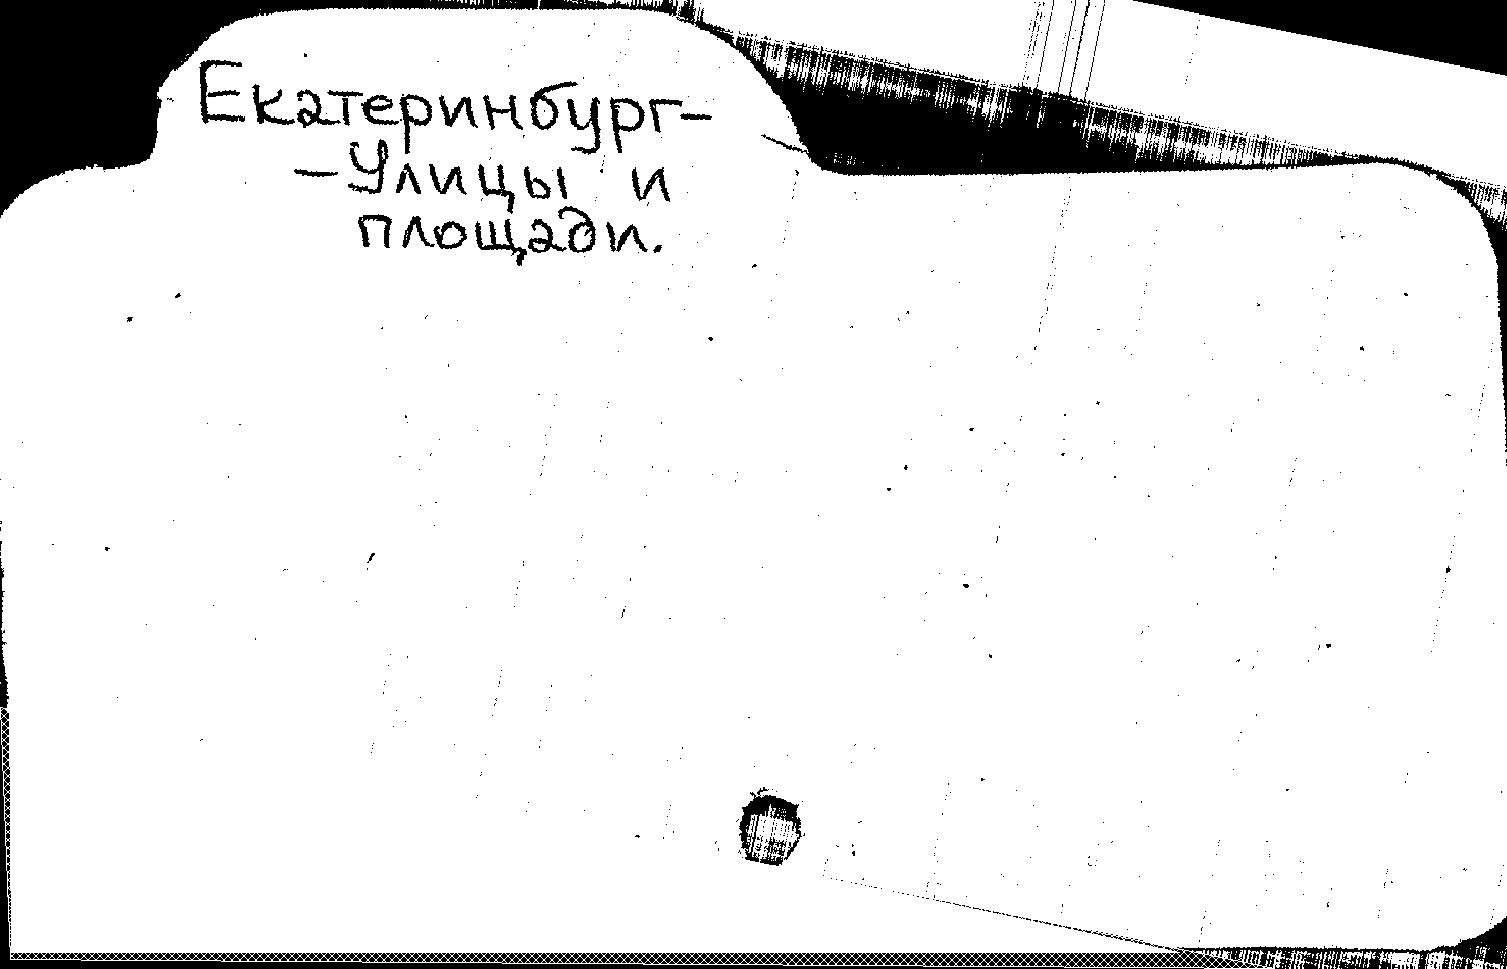 Екатеринбург-
-Улицы и
площади.